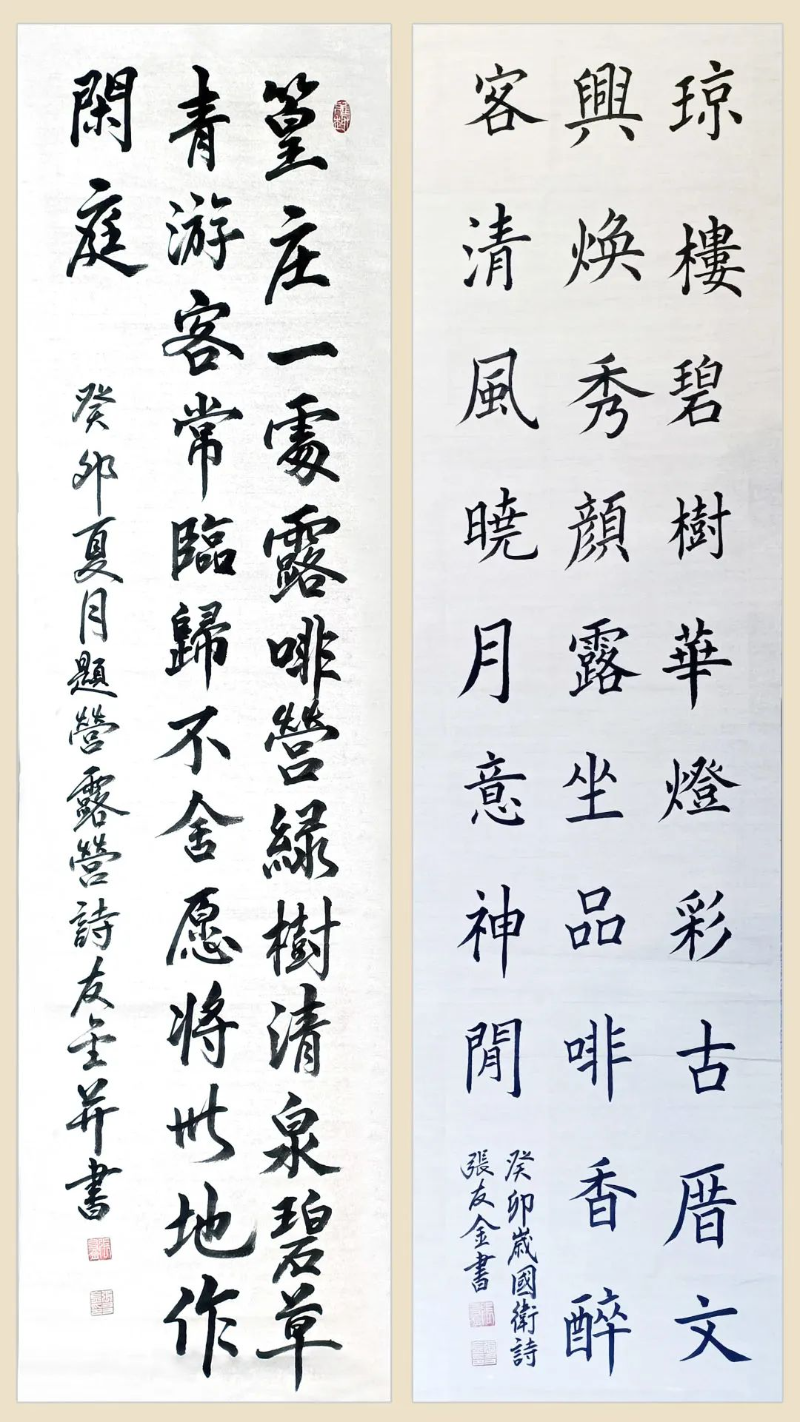 琼樓碧樹華燈彩古厝文
興煥秀顔露坐品啡香醉
客清風曉月意神閒
癸卯歲國衛詩
張友金書
篁庄一處露啡營緑樹清泉碧草
青游客常臨歸不舍愿将此地作
閑庭
癸卯夏月題營露營詩友金并書